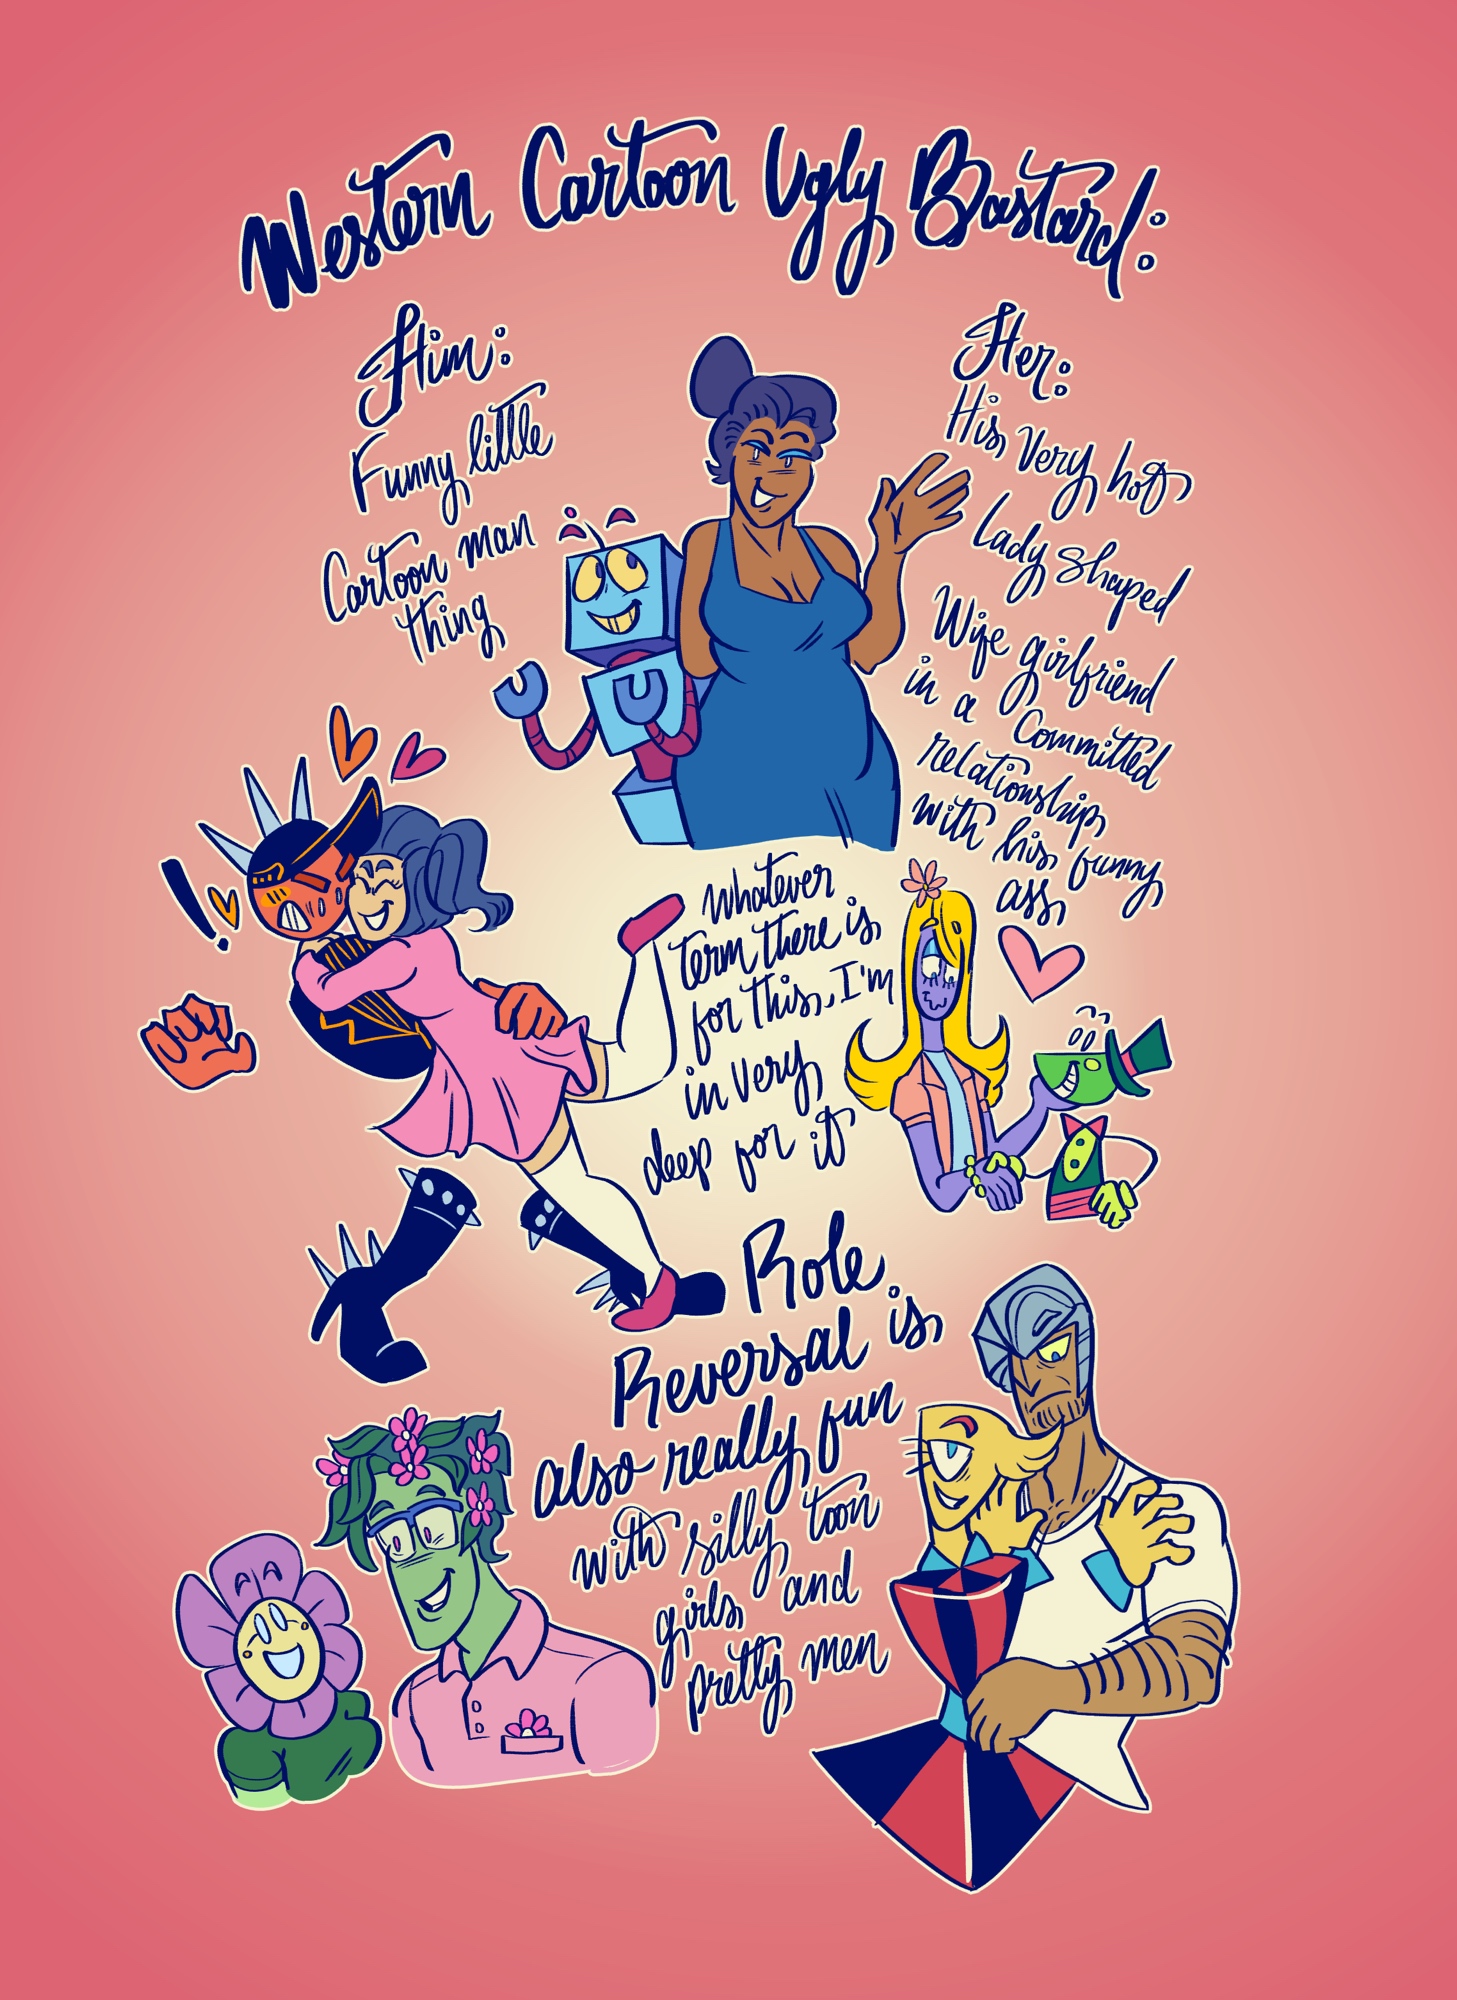 Western Cartoon Ugly Bastard:
Him:
Funny little
Cartoon man
thing
Her:
His very hot
Lady shaped
Wife girlfriend
in a Committed
relationship
with his funny
ass
!
Whatever
term there is
for this, I'm
in very
deep for it
Role
Reversal is
also really fun
with silly toon
girls and
pretty men